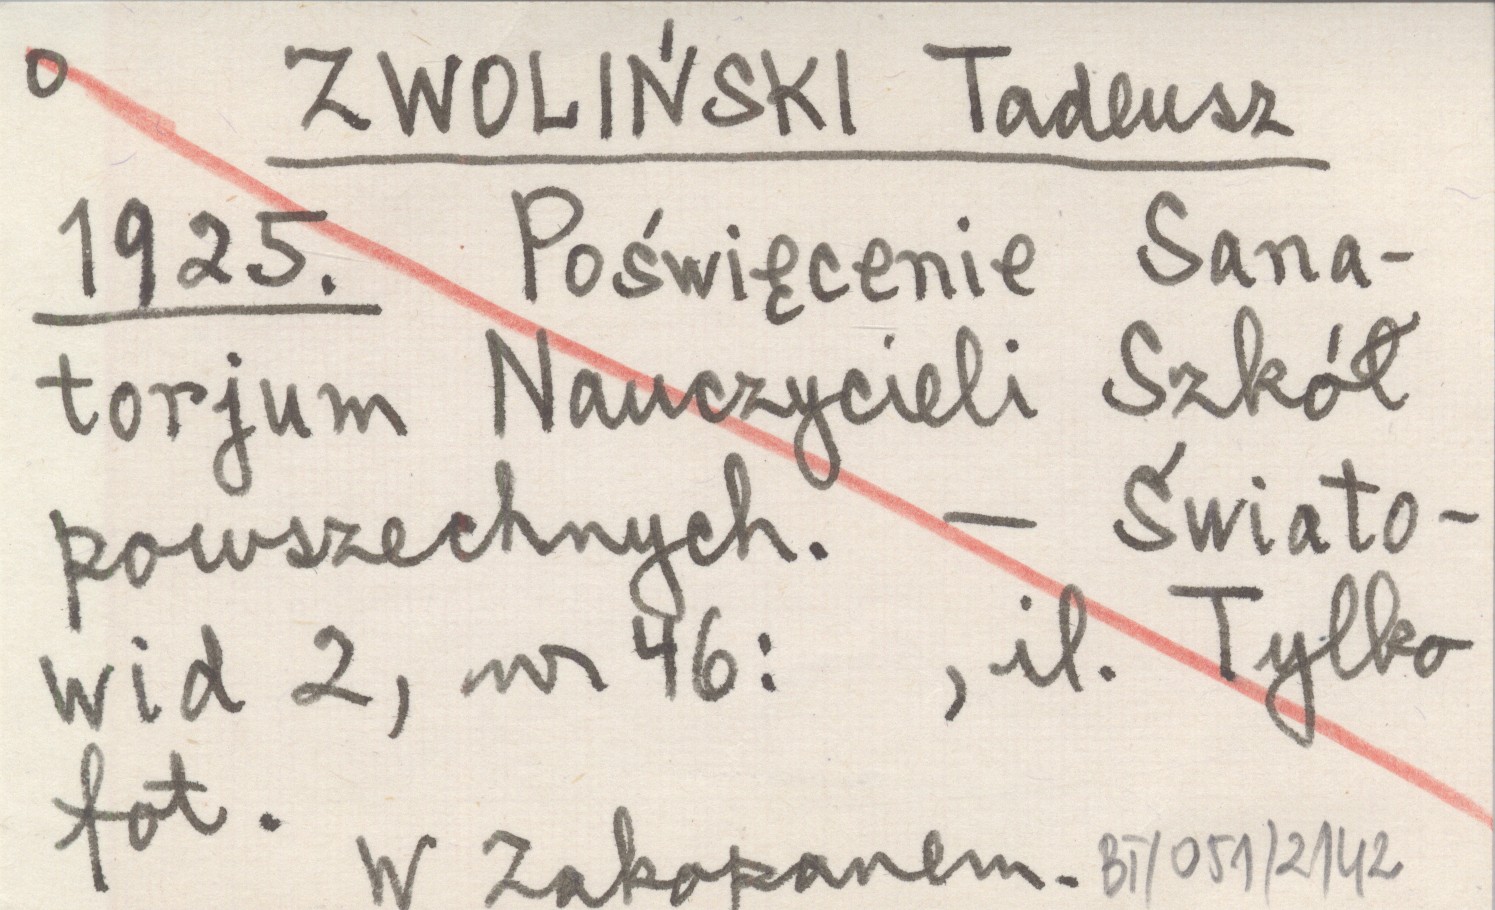 o ZWOLIŃSKI Tadeusz
1925. Poświęcenie Sana-
torjum Nauczycieli Szkół
powszechnych. — Świato-
wid 2, nr 46: , il. Tylko
fot.
W Zakopanem. BT/051/2142